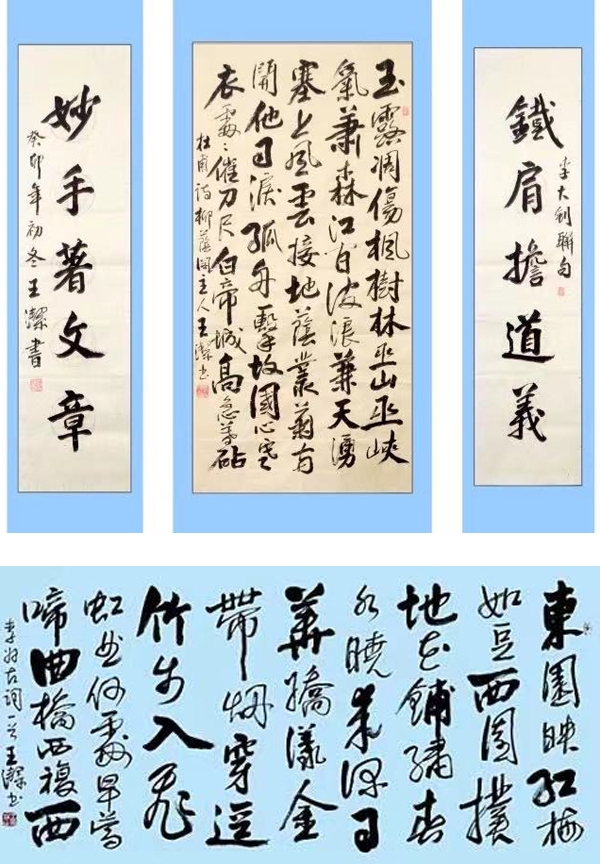 鐵肩擔道義
李大釗聯句
玉露凋傷楓樹林巫山巫峽
氣蕭森江間波浪兼天湧
塞上風雲接地蔭叢菊兩
開他日淚孤舟一繫故園心寒
衣處〻催刀尺白帝城高急暮砧
杜甫詩柳蔭閣主人王潔书
妙手著文章
癸卯年初冬王潔書
東園映紅梅
如豆西園撲
地花鋪繡春
水曉來深日
華驕漾金
帶烟穿逕
竹步入飛
虹曲何處早鶯
啼曲橋西複西
李好古詞一首王潔书